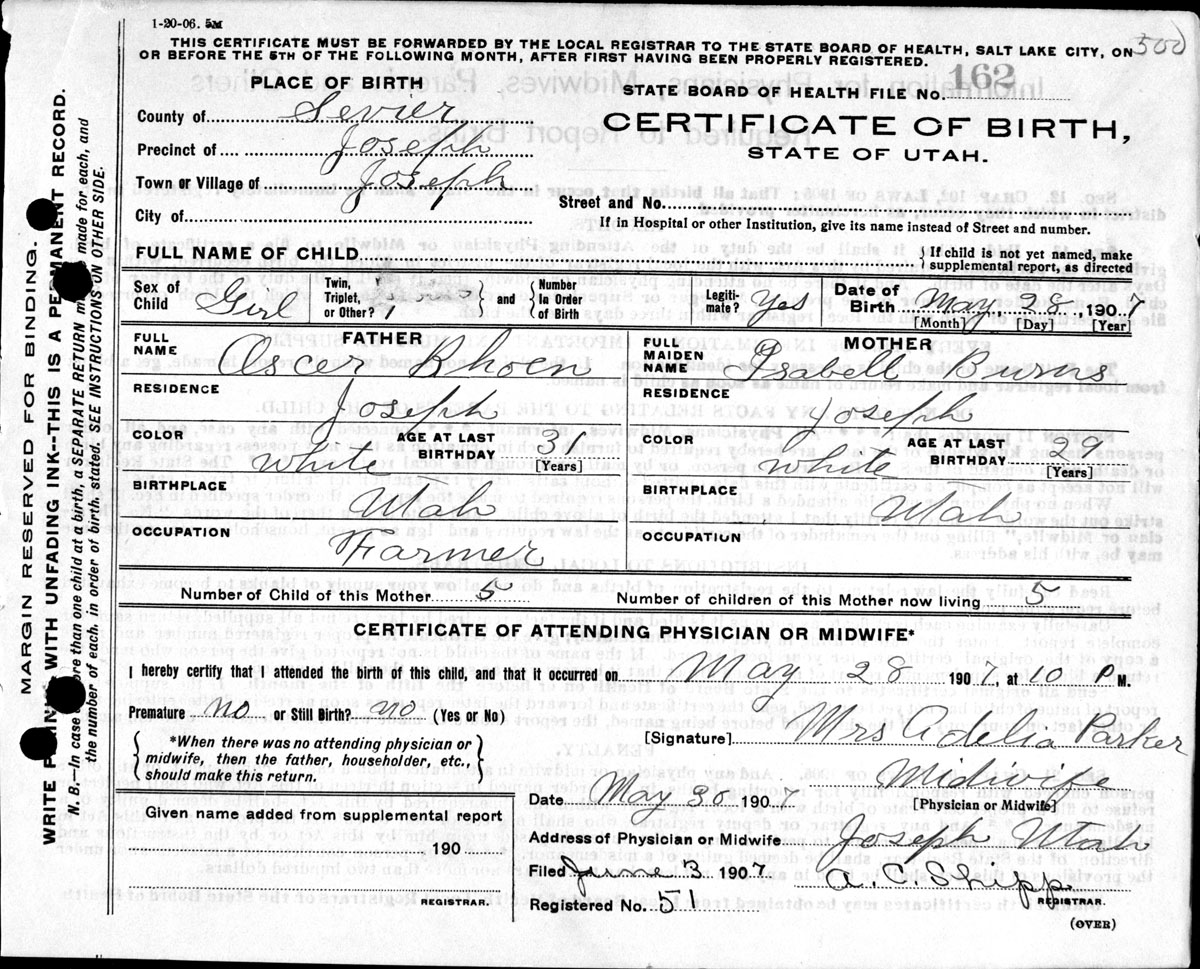 1-20-06. 5M
500
THIS CERTIFICATE MUST BE FORWARDED BY THE LOCAL REGISTRAR TO THE STATE BOARD OF HEALTH, SALT LAKE CITY, ON
OR BEFORE THE 5TH OF THE FOLLOWING MONTH, AFTER FIRST HAVING BEEN PROPERLY REGISTERED.
PLACE OF BIRTH
STATE BOARD OF HEALTH FILE NO. 162
County of Sevier
CERTIFICATE OF BIRTH,
STATE OF UTAH.
Precinct of Joseph
Town or Village of Joseph
Street and No.
City of
If in Hospital or other Institution, give its name instead of Street and number.
FULL NAME OF CHILD
If child is not yet named, make
supplemental report, as directed
Sex of Child Girl
Twin, Triplet, or Other?
and
Number In Order of Birth
Legitimate? Yes
Date of Birth May 28 1907
[Month] [Day] [Year]
FATHER
FULL NAME Oscer Khoen
RESIDENCE Joseph
COLOR White
AGE AT LAST BIRTHDAY 31
[Years]
BIRTHPLACE Utah
OCCUPATION Farmer
MOTHER
FULL MAIDEN NAME Isabell Burns
RESIDENCE Joseph
COLOR White
AGE AT LAST BIRTHDAY 29
[Years]
BIRTHPLACE Utah
OCCUPATION
Number of Child of this Mother 5
Number of children of this Mother now living 5
CERTIFICATE OF ATTENDING PHYSICIAN OR MIDWIFE*
I hereby certify that I attended the birth of this child, and that it occurred on May 28 1907, at 10 P M.
Premature no or Still Birth? no (Yes or No)
*When there was no attending physician or
midwife, then the father, householder, etc.,
should make this return.
[Signature] Mrs Adelia Parker
Midwife
[Physician or Midwife]
Date May 30 1907
Given name added from supplemental report
190
REGISTRAR.
Address of Physician or Midwife Joseph Utah
Filed June 3 1907
A. C. Shipp
REGISTRAR.
Registered No. 51
(OVER)
MARGIN RESERVED FOR BINDING.
WRITE PLAINLY WITH UNFADING INK—THIS IS A PERMANENT RECORD.
N. B.—In case of more than one child at a birth, a SEPARATE RETURN must be made for each, and
the number of each, in order of birth, stated. SEE INSTRUCTIONS ON OTHER SIDE.